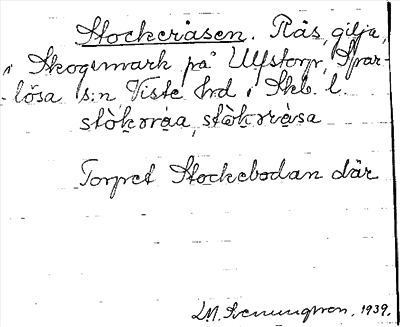 Stockeråsen. Rås, gilja,
i Skogsmark på Ulfstorp, Spar-
lösa s:n Viste hrd i Skb. l.
stòkəråa, stòkəråsa
Torpet Stockebodan där
LM. Svenungsson. 1939.